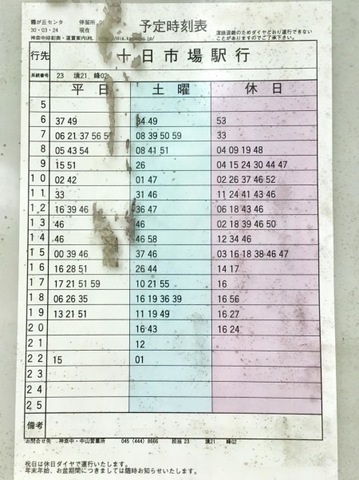 霧が丘センタ 停留所
30・03・24 現在
神奈中時刻表・運賃案内URL
予定時刻表
道路混雑のためダイヤどおり運行できない
ことがありますのでご了承下さい。
行先 十日市場駅行
系統番号 23 横21 峰02
平日 土曜 休日
5
6 37 49 34 49 53
7 06 21 37 56 56 08 39 50 59 33
8 05 43 54 08 41 51 04 09 19 48
9 15 51 26 04 15 24 30 44 47
10 02 42 01 47 02 26 37 46 52
11 33 31 46 11 24 41 43 46
12 16 39 46 36 47 06 18 43 46
13 46 46 02 18 39 46 50
14 46 46 58 12 34 46
15 00 39 46 37 46 03 16 18 38 46 47
16 16 28 51 26 44 14 17
17 17 21 51 59 10 21 55 16
18 06 26 35 16 19 36 39 16 56
19 13 21 51 11 19 49 16 27
20 16 43 16 24
21 12
22 15 01
23
24
25
備考
お問合せ先 神奈中・中山営業所 045 (444) 8666 担当 23 横21 峰02
祝日は休日ダイヤで運行いたします。
年末年始、お盆期間につきましては随時お知らせいたします。